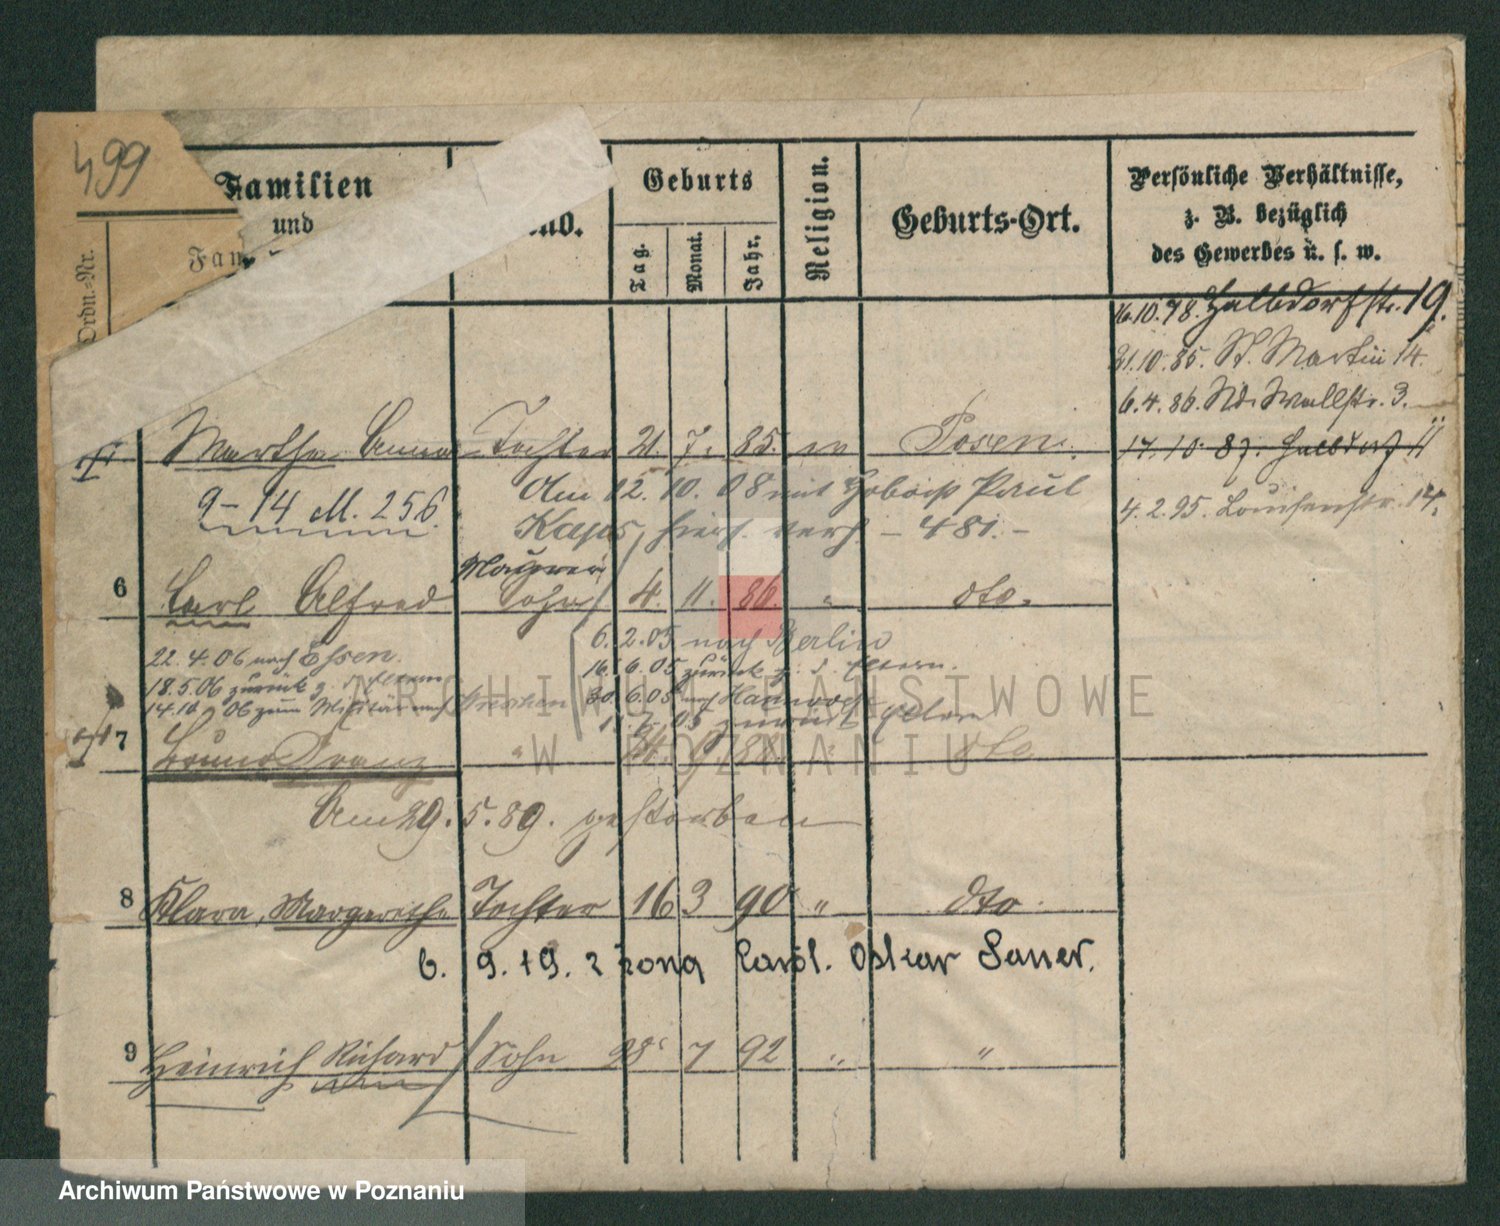 499
Familien
und
Fam
Ordn.-Nr.
nd.
Geburts
Tag.
Monat.
Jahr.
Religion.
Geburts-Ort.
Persönliche Verhältnisse,
z. B. bezüglich
des Gewerbes u. s. w.
16.10.78. Halbdorfstr. 19.
21.10.85. St. Martin 14.
6.4.86. Nd. Wallstr. 3.
17.10.87. Halbdorf
4.2.95. Louisenstr.
Martha Anna Tochter 21. 7. 85. Posen.
9-14 M. 256.
Am 12. 10. 08 mit Paul
Kaps, hier verh. - 481. -
Maurer
6 Carl Alfred Sohn 4. 11. 86. " dto.
6. 2. 05 nach Berlin
22.4.06 nach Essen.
16. 6. 05 zurück z. d. Eltern.
18.5.06 zurück z. d. Eltern
30. 6. 05 nach Hannover
14.10.06 zum Militär nach
1. 7. 05 zurück Eltern
7 Bruno Franz " dto
Am 29. 5. 89. gestorben
8 Klara, Margarethe Tochter 16 3 90 " dto.
6. 9. 19. żona Karol. Oskar Sauer.
9 Heinrich Richard Sohn 28 7 92 " "
ARCHIWUM PAŃSTWOWE
W POZNANIU
Archiwum Państwowe w Poznaniu